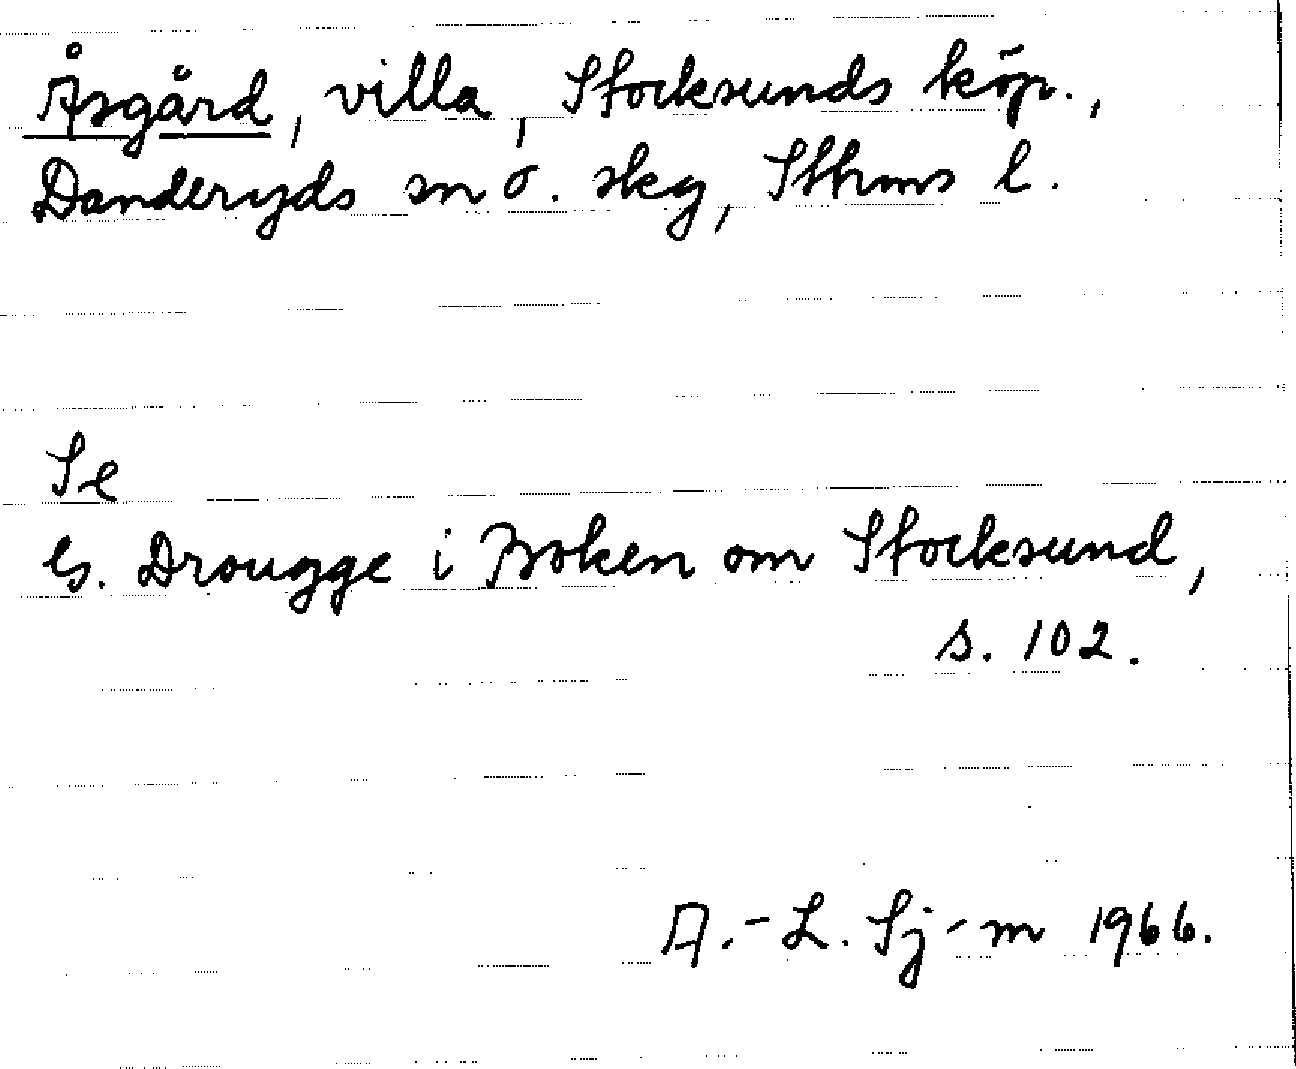 Åsgård, villa, Stocksunds köp.,
Danderyds sn o. skg, Sthms l.
Se
G. Drougge i Boken om Stocksund,
s. 102.
A.-L. Sj-m 1966.